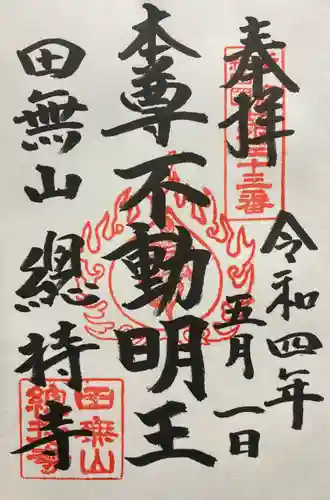 奉拝
令和四年
五月一日
本尊不動明王
田無山
總持寺
田無山
總持寺